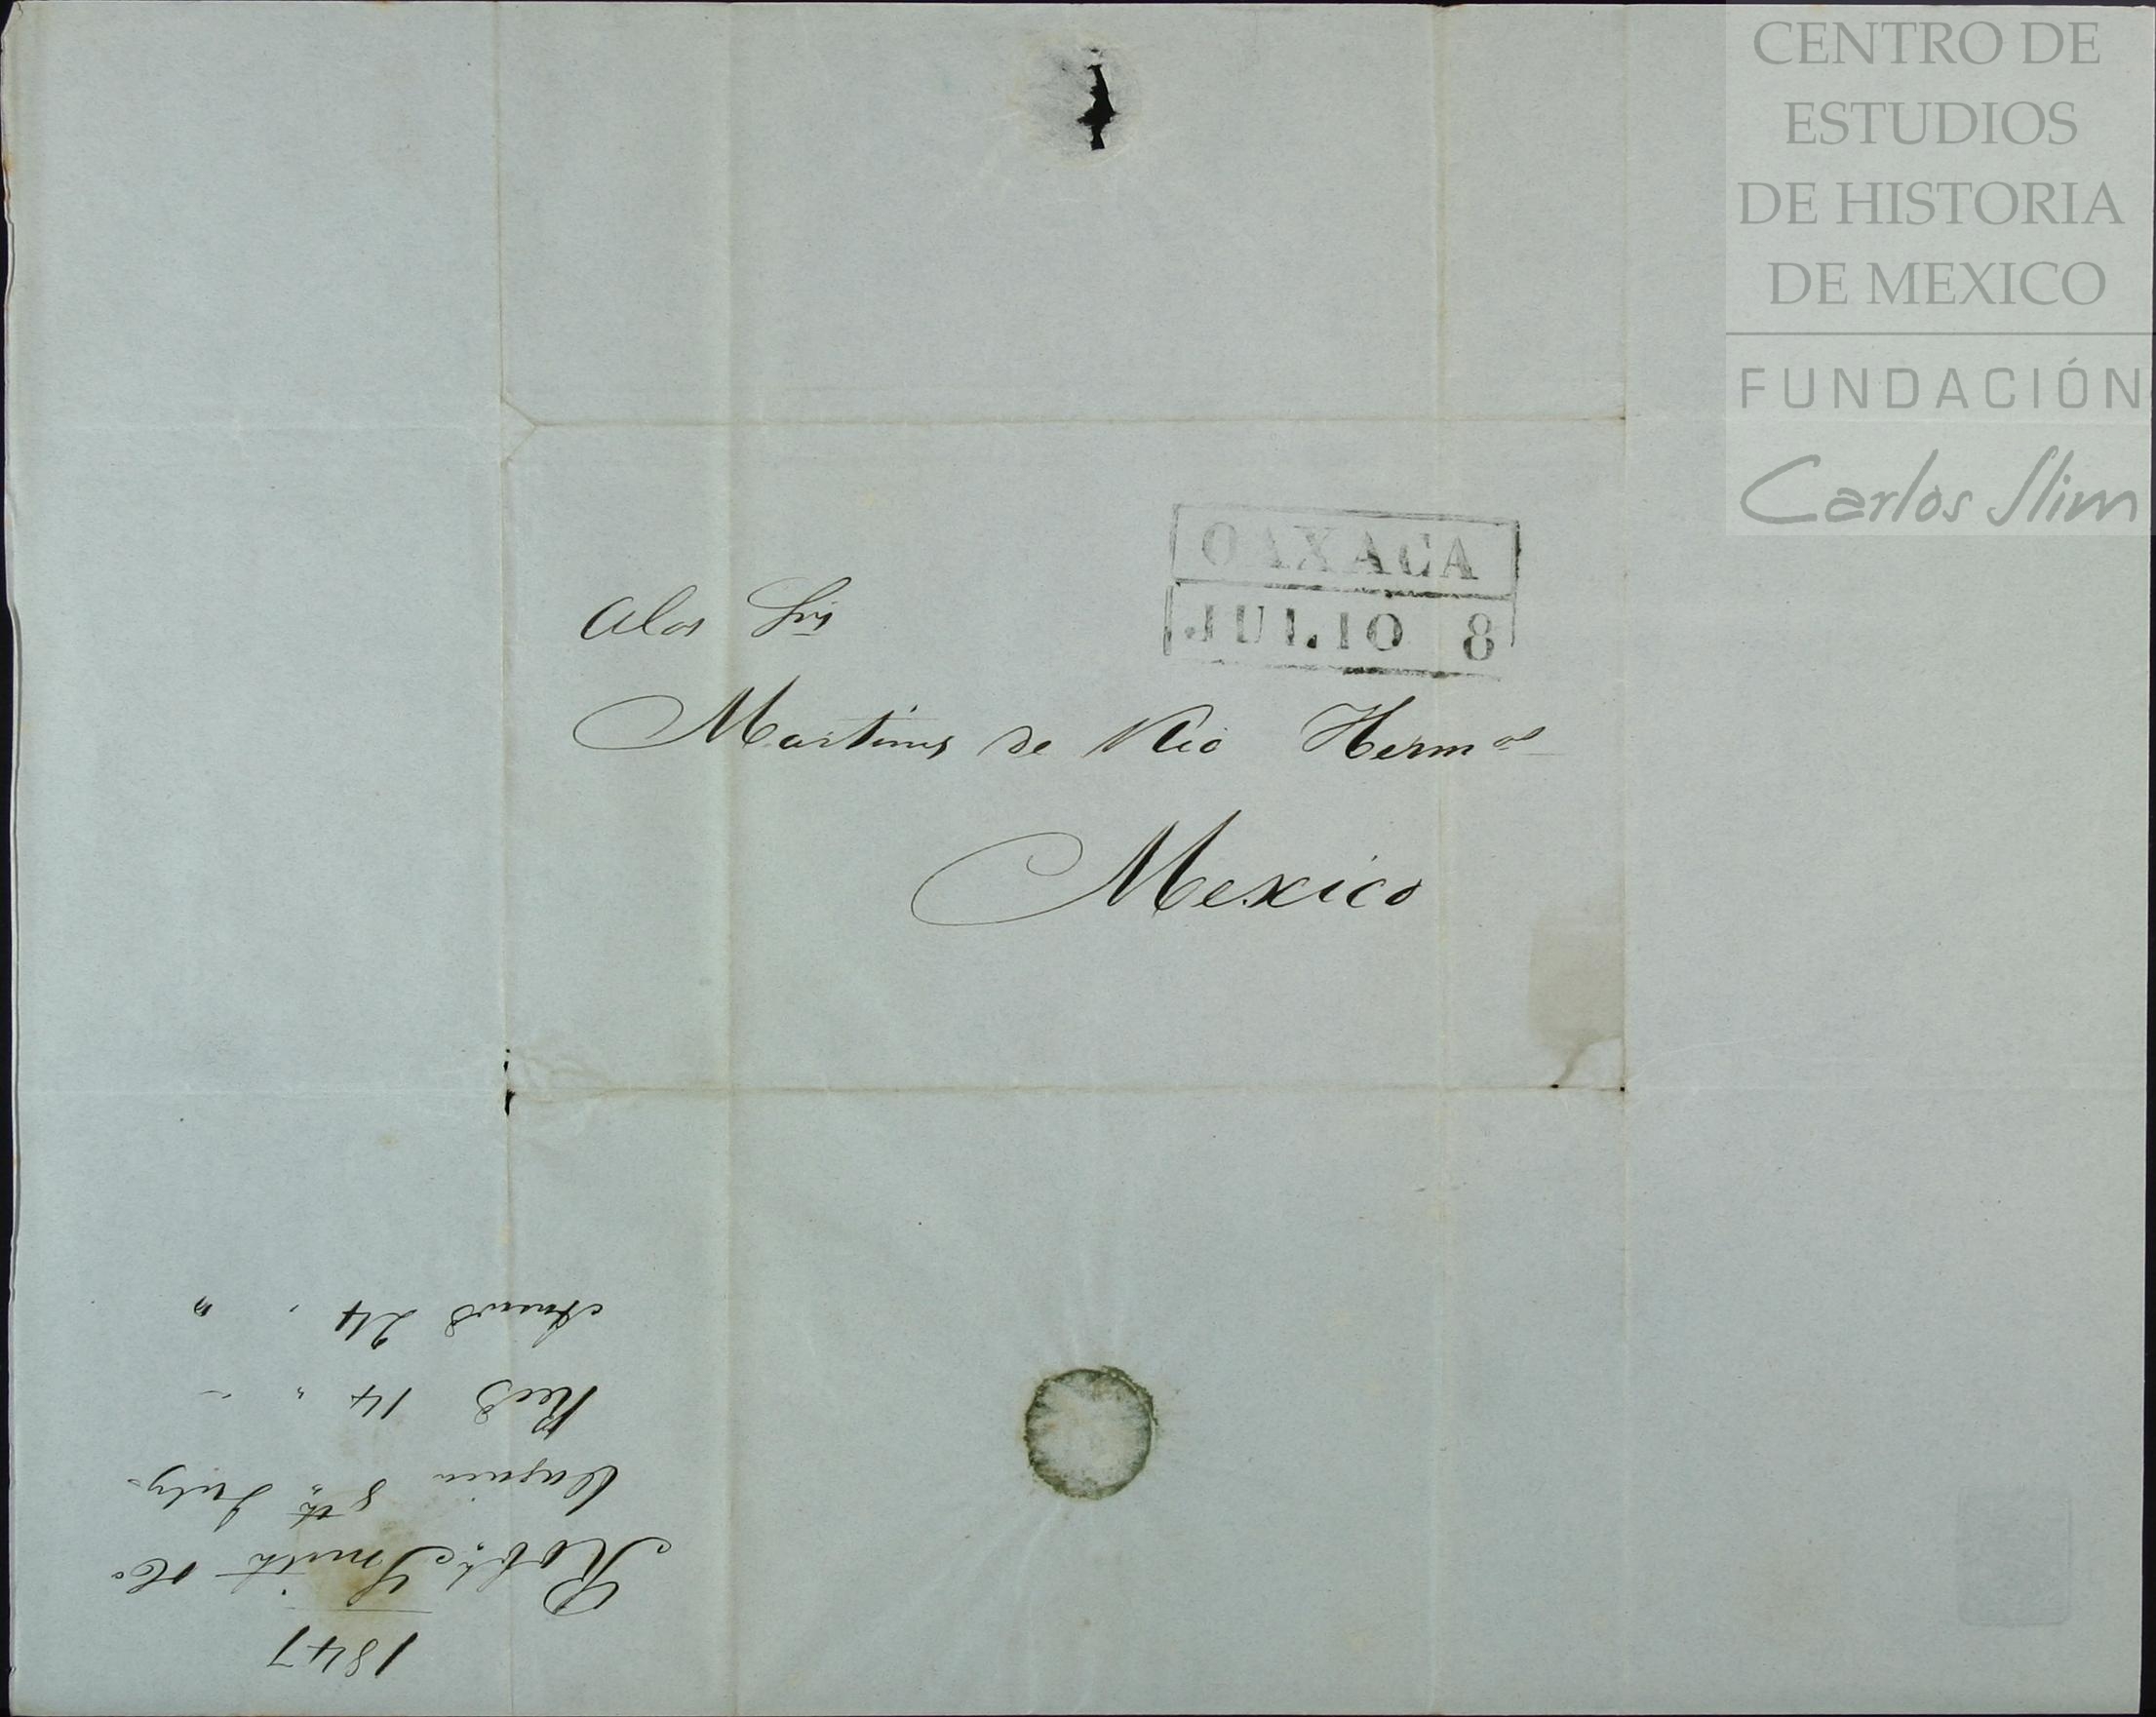 CENTRO DE
ESTUDIOS
DE HISTORIA
DE MEXICO
FUNDACIÓN
Carlos Slim
OAXACA
JULIO 8
Alos Srs
Martines de Rio Hermos
Mexico
1847
Robt. Smith &Co
Oajaca 8th July
Recd 14 " "
Answd 24 " "